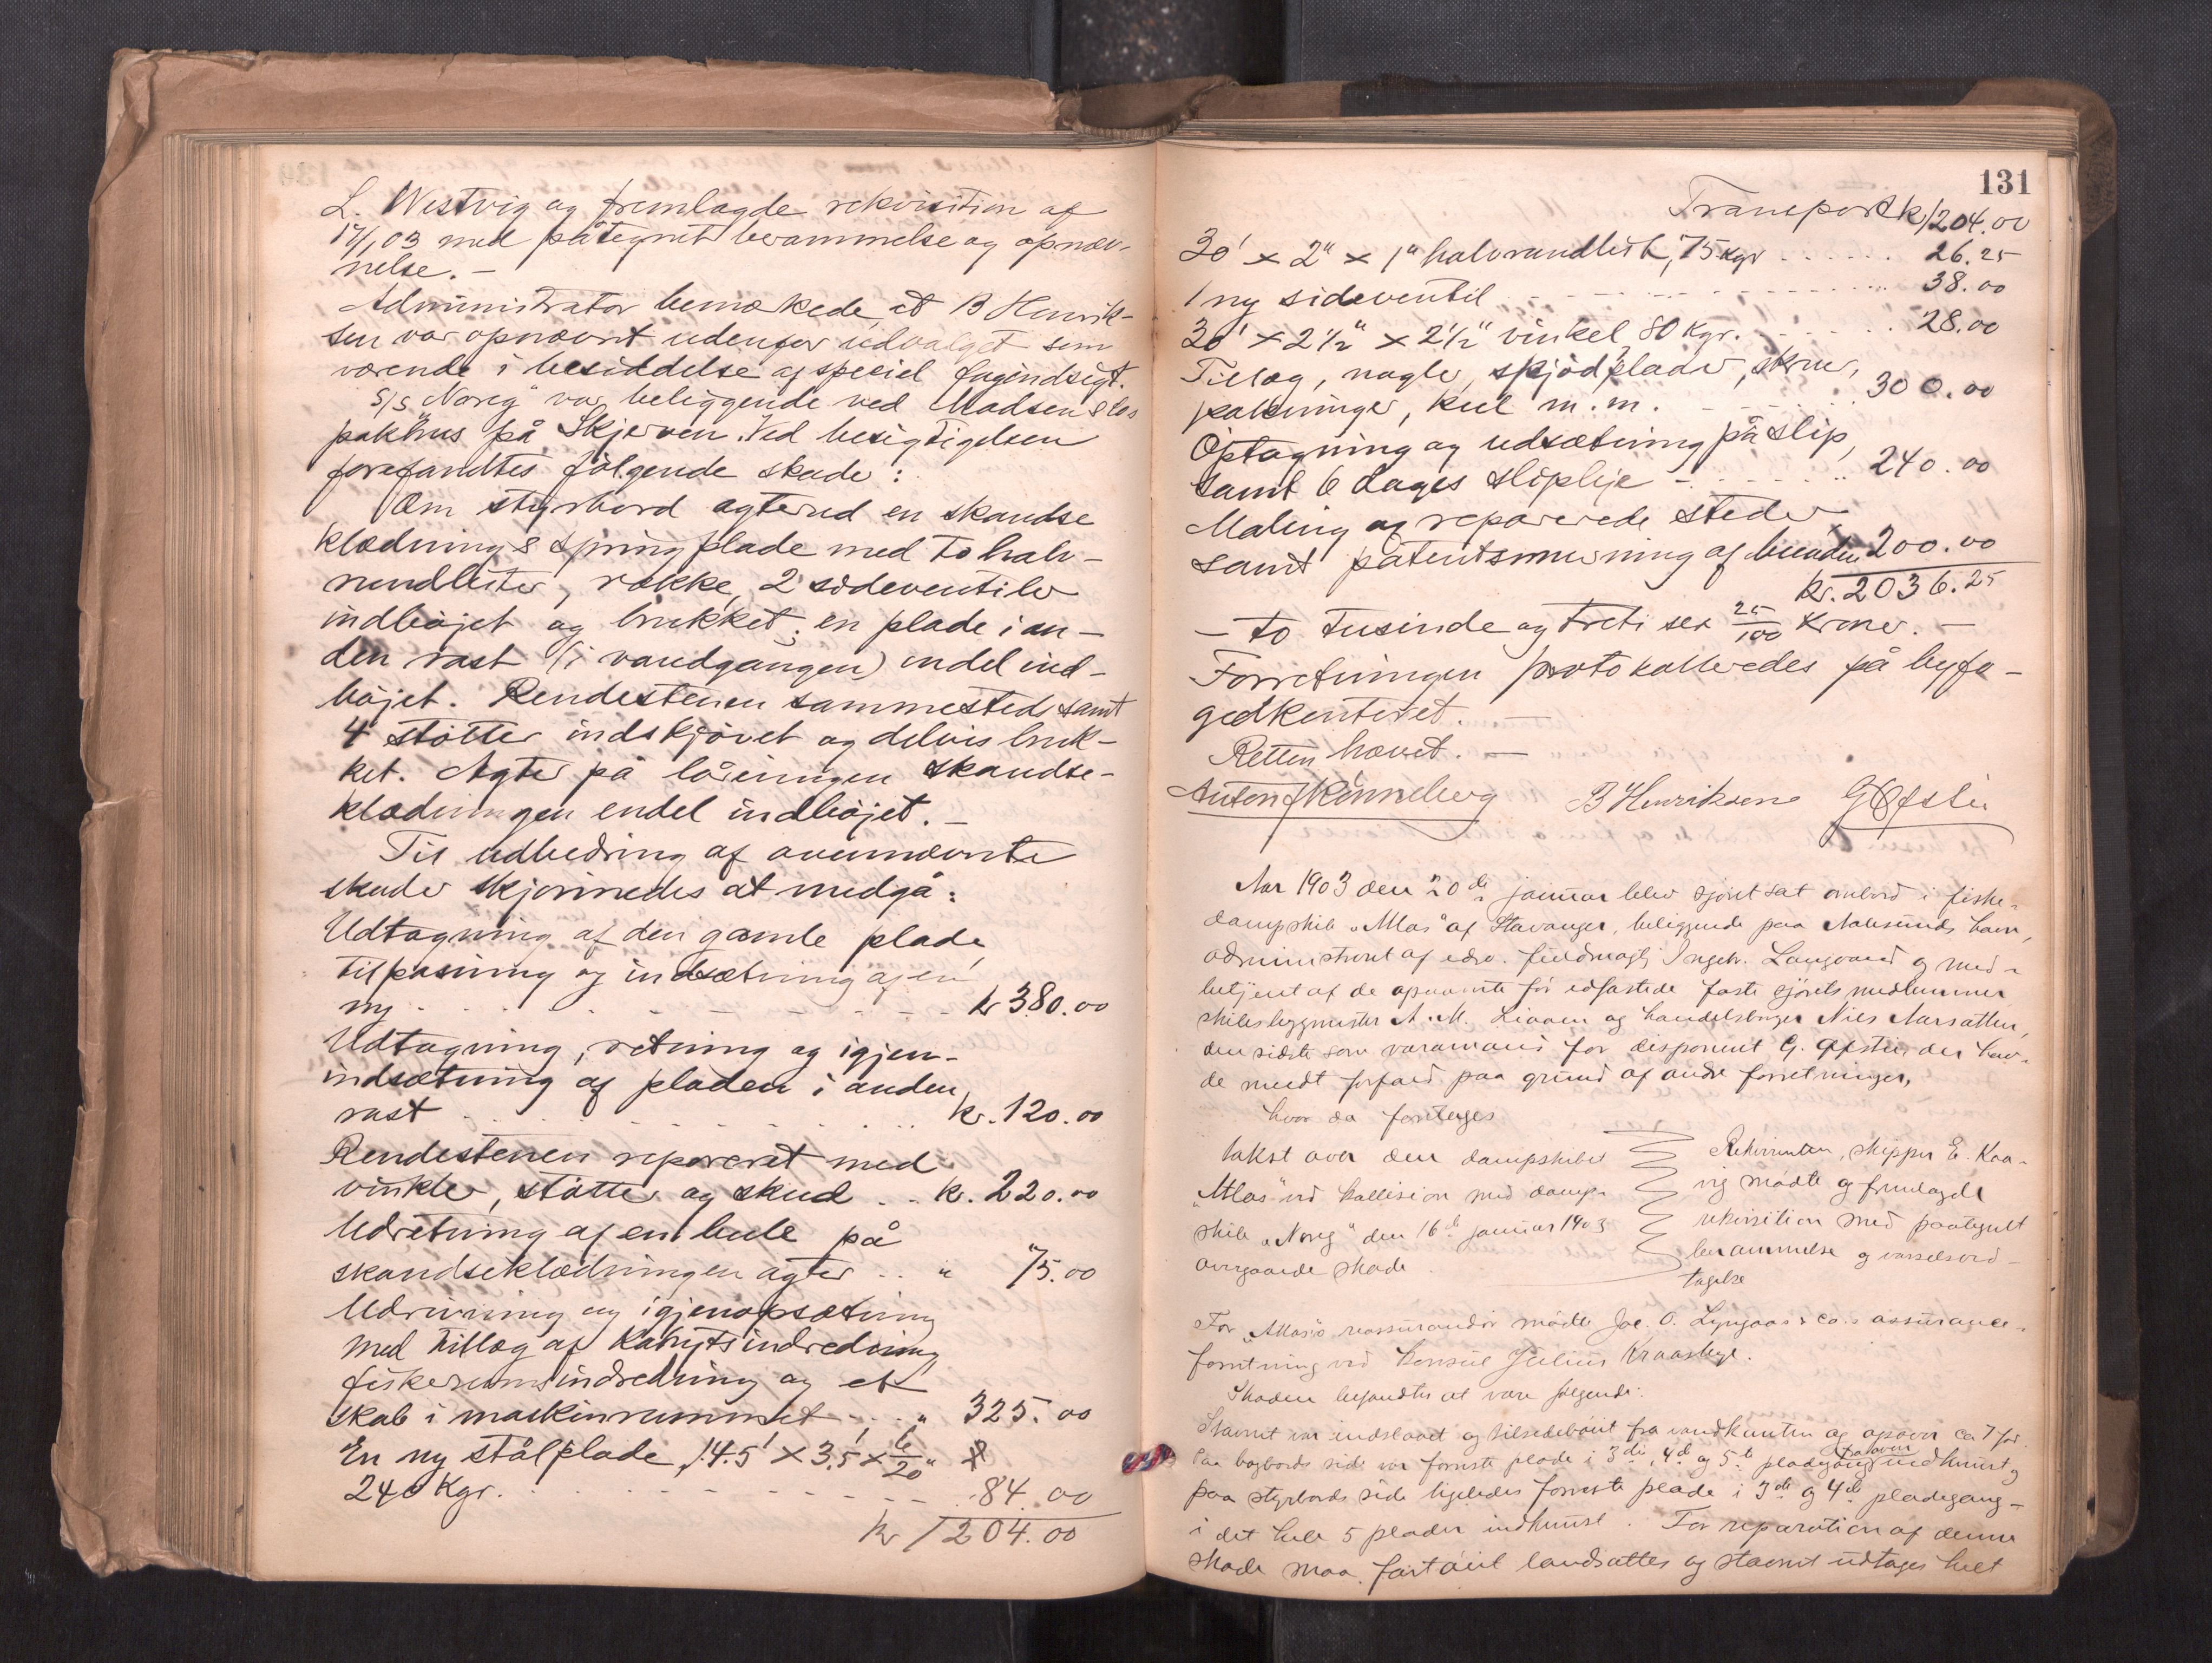 L. Westvig og fremlagde rekvisition af
17/1 03 med påtegnet berammelse og opnæv-
nelse. –
Administrator bemærkede, at B Henrik-
sen var opnævnt udenfor udvalget som
værende i besiddelse af speciel fagindsigt.
S/S "Noreg" var beliggende ved Madsens
pakhus på Skjerven. Ved besigtigelsen
forefandtes følgende skade:
Om styrbord agterud en skandse
klædnings springplade med to halv-
rundlister, række, 2 sideventiler
indbøjet og brukket; en plade i an-
den rast (i vandgangen) endel ind-
bøjet. Rendestenen sammesteds samt
4 støtter indskjøvet og delvis bruk-
ket. Agter på låringen skandse-
klædningen endel indbøjet. –
Til udbedring af ovennævnte
skader skjønnedes at medgå:
Udtagning af den gamle plade,
tilpasning og indsætning af en
ny . . . . kr 380.00
Udtagning, retning og igjen-
indsætning af pladen i anden
rast . . . . kr. 120.00
Rendestenen repareret med
vinkler, støtter og skud . . kr. 220.00
Udretning af en bule på
skandseklædningen agter . . " 75.00
Udrivning og igjenopsætning
med tillæg af kahytsindredning,
fiskerumsindredning og et
skab i maskinrummet . . . " 325.00
En ny stålplade, 14.5' × 3,5' × 6/20"
240 Kgr. . . . . 84.00
kr 1204.00
131
Transport kr 1204.00
30' × 2" × 1" halvrundlist, 75 kgr . . . . 26.25
1 ny sideventil . . . . 38.00
30' × 2 1/2" × 2 1/2" vinkel, 80 Kgr. . . . . 28.00
Tillæg, nagler, skjødplader, skruer,
pakninger, kul m.m. . . . . 300.00
Optagning og udsætning på slip,
samt 6 dages slipleje . . . . 240.00
Maling af reparerede steder
samt patentsmurning af bunden 200.00
kr. 2036.25
– to tusinde og treti sex 25/100 kroner. –
Forretningen protokolleredes på byfo-
gedkontoret. –
Retten hævet. –
Anton J Rønneberg B Henriksen G Øfsti
Aar 1903 den 20de januar blev sjøret sat ombord i fiske-
dampskib "Atlas" af Stavanger, beliggende paa Aalesunds havn,
administreret af edsv. fuldmægtig Ingebr. Langvand og med-
betjent af de opnævnte før edfæstede faste sjørets medlemmer
skibsbygmester A. M. Liaaen og handelsborger Nils Aarsæther,
den sidste som varamand for disponent G. Øfsti, der hav-
de meldt forfald paa grund af andre forretninger,
hvor da foretoges
takst over den dampskibet
"Atlas" ved kollision med damp-
skib "Noreg" den 16de januar 1903
overgaaede skade
Rekvirenten, skipper E. Kaa-
vig mødte og fremlagde
rekvisition med paategnet
berammelse og varselsved-
tagelse
For "Atlas"'s reassurandør mødte Joc. O. Lyngaas & Co.s assurance-
forretning ved konsul Julius Kraasbye.
Skaden befandtes at være følgende:
Stævnet var indslaaet og tilsidebøiet fra vandkanten og opover ca 7 fod.
Paa bagbords side var forreste plade i 3die, 4de og 5te pladegang fraoven indknust og
paa styrbords side ligeledes forreste plade i 3die og 4de pladegang –
i det hele 5 plader indknust. For reparation af denne
skade maa fartøiet landsættes og stævnet udtages helt